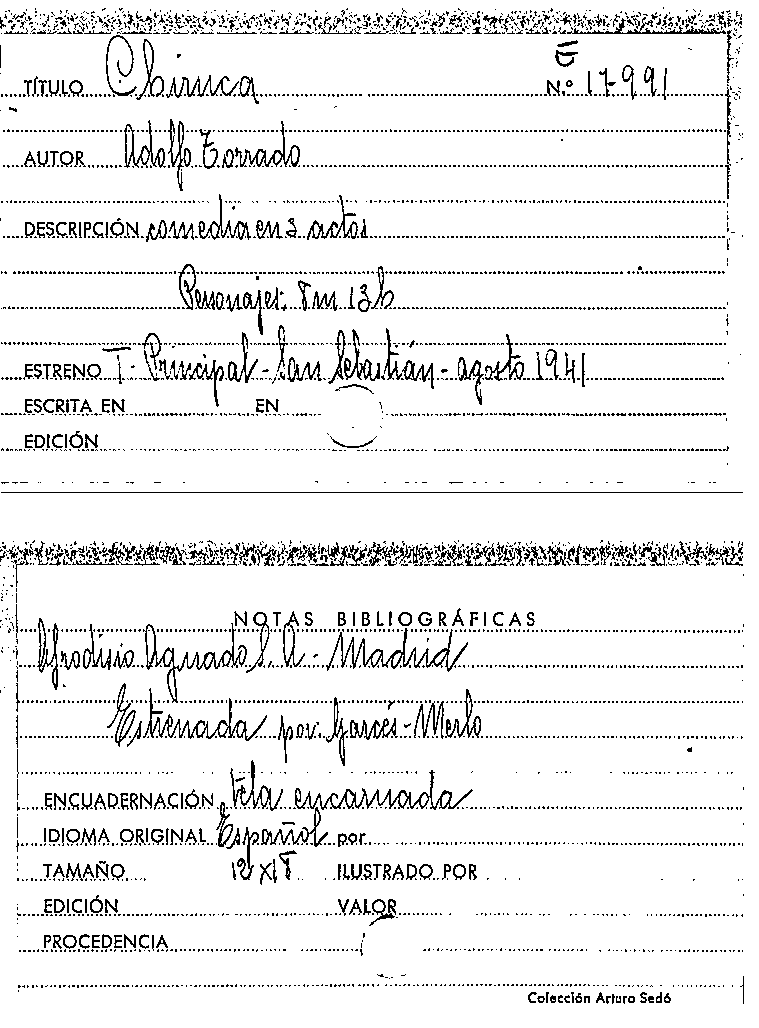 E
TÍTULO Chiruca N.º 17-991
AUTOR Adolfo Torrado
DESCRIPCIÓN comedia en 3 actos
Personajes. 8m 13h
ESTRENO T. Principal - San Sebastián - agosto 1941
ESCRITA EN EN
EDICIÓN
NOTAS BIBLIOGRÁFICAS
Afrodisio Aguado S. A - Madrid
Estrenada por: Garcés - Merlo
ENCUADERNACIÓN tela encarnada
IDIOMA ORIGINAL Español por
TAMAÑO 12x18 ILUSTRADO POR
EDICIÓN VALOR
PROCEDENCIA
Colección Arturo Sedó